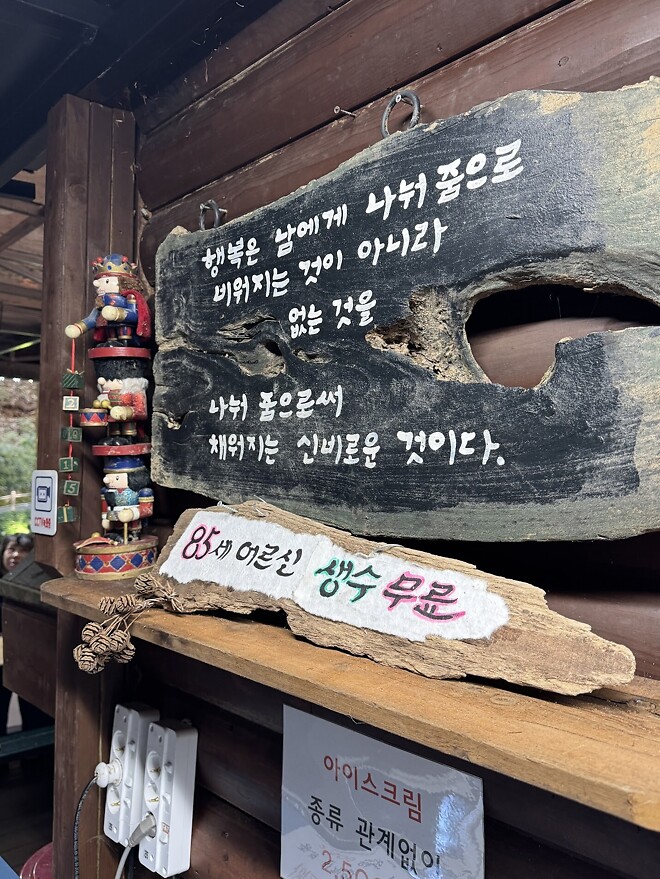 행복은 남에게 나눠 줌으로
비워지는 것이 아니라
없는 것을
나눠 줌으로써
채워지는 신비로운 것이다.
85세 어르신 생수 무료
아이스크림
종류 관계없이